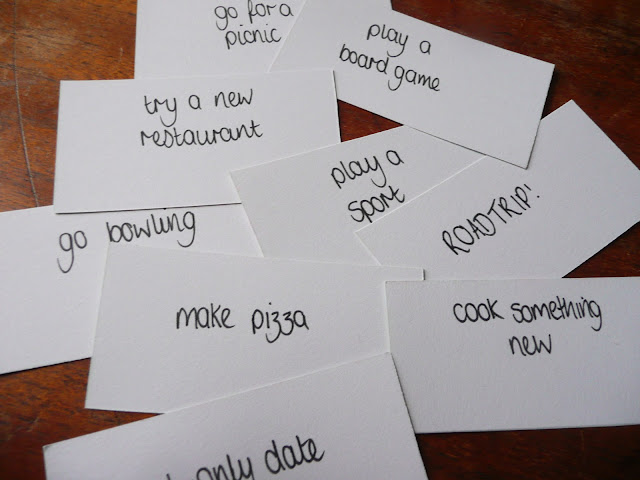 go for a
picnic
play a
board game
try a new
restaurant
play a
sport
ROADTRIP!
go bowling
make pizza
cook something
new
only date